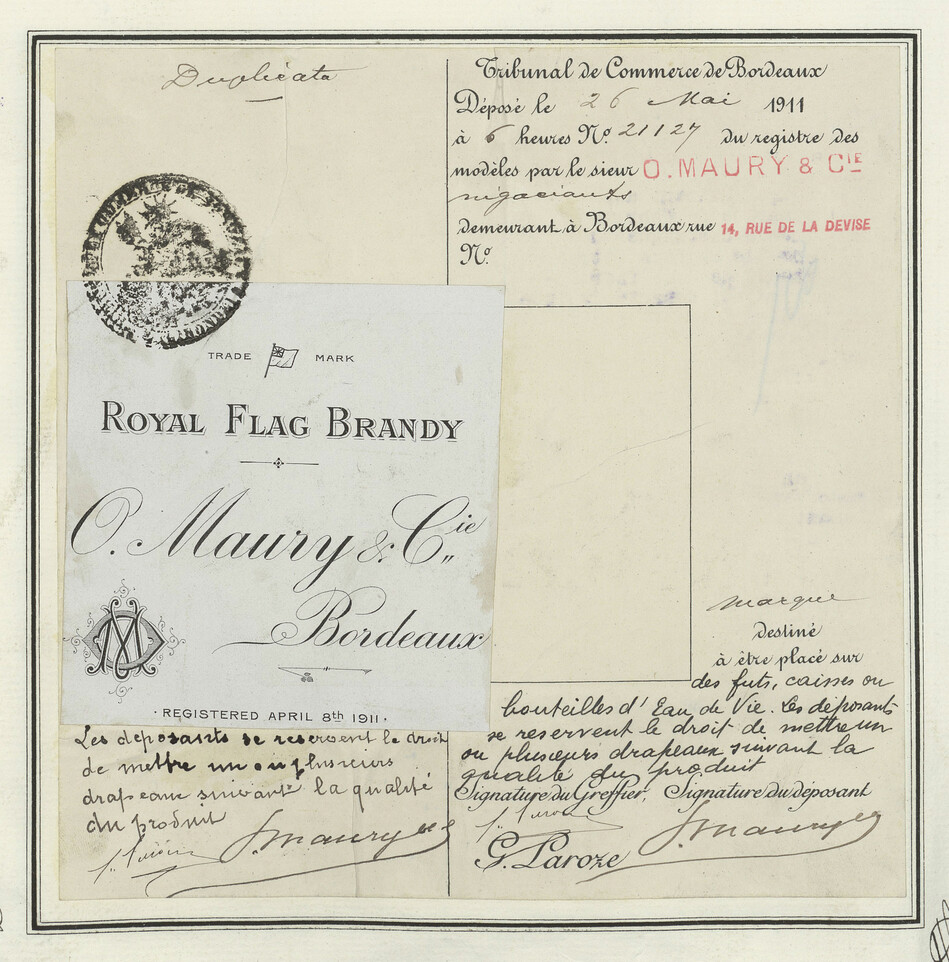 Duplicata
Tribunal de Commerce de Bordeaux
Déposé le 26 Mai 1911
à 6 heures No. 21127 du registre des
modèles par le sieur O. MAURY & CIE
négociants
demeurant à Bordeaux rue 14, RUE DE LA DEVISE
No.
TRADE MARK
ROYAL FLAG BRANDY
O. Maury & Cie
Bordeaux
· REGISTERED APRIL 8th 1911 ·
Les deposants se reservent le droit
de mettre un ou plusieurs
drapeaux suivant la qualité
du produit
marque
destiné
à être placé sur
des futs, caisses ou
bouteilles d'Eau de Vie. Les déposants
se reservent le droit de mettre un
ou plusieurs drapeaux suivant la
qualité du produit
Signature du Greffier, Signature du déposant
G. Laroze